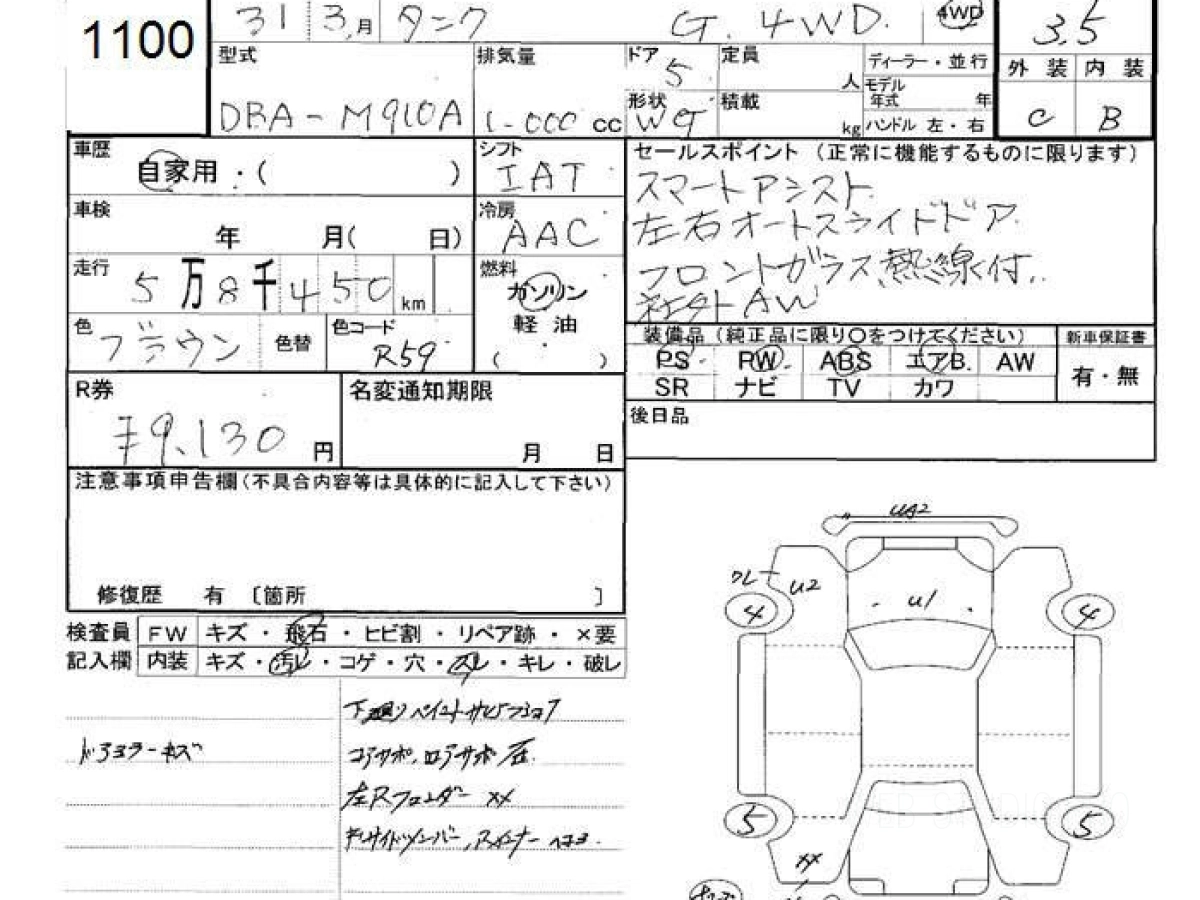 1100
31 3月 タンク G. 4WD. 4WD
3.5
型式 排気量 ドア 5 定員 人 ディーラー・並行
外装 内装
DBA-M910A 1-000 cc 形状 WG 積載 kg モデル年式 年
ハンドル 左・右
C B
車歴 自家用・( )
シフト IAT
セールスポイント (正常に機能するものに限ります)
スマートアシスト
左右オートスライドドア
フロントガラス熱線付
社外AW
車検 年 月( 日)
冷房 AAC
走行 5万8千450 km
燃料 ガソリン
軽油
( )
色 ブラウン 色替 色コード R59
装備品 (純正品に限り○をつけてください) 新車保証書
PS PW ABS エアB. AW 有・無
SR ナビ TV カワ
R券 ¥9,130 円
名変通知期限 月 日
後日品
注意事項申告欄(不具合内容等は具体的に記入して下さい)
修復歴 有 〔箇所 〕
検査員 FW キズ・飛石・ヒビ割・リペア跡・×要
記入欄 内装 キズ・汚レ・コゲ・穴・スレ・キレ・破レ
下廻りペイントサビ
ドアミラーキズ
コアサポ,ロアサポ圧.
左Rフェンダー XX
サイドメンバー,
UA2
クレー U2
U1
4 4
5 5
XX